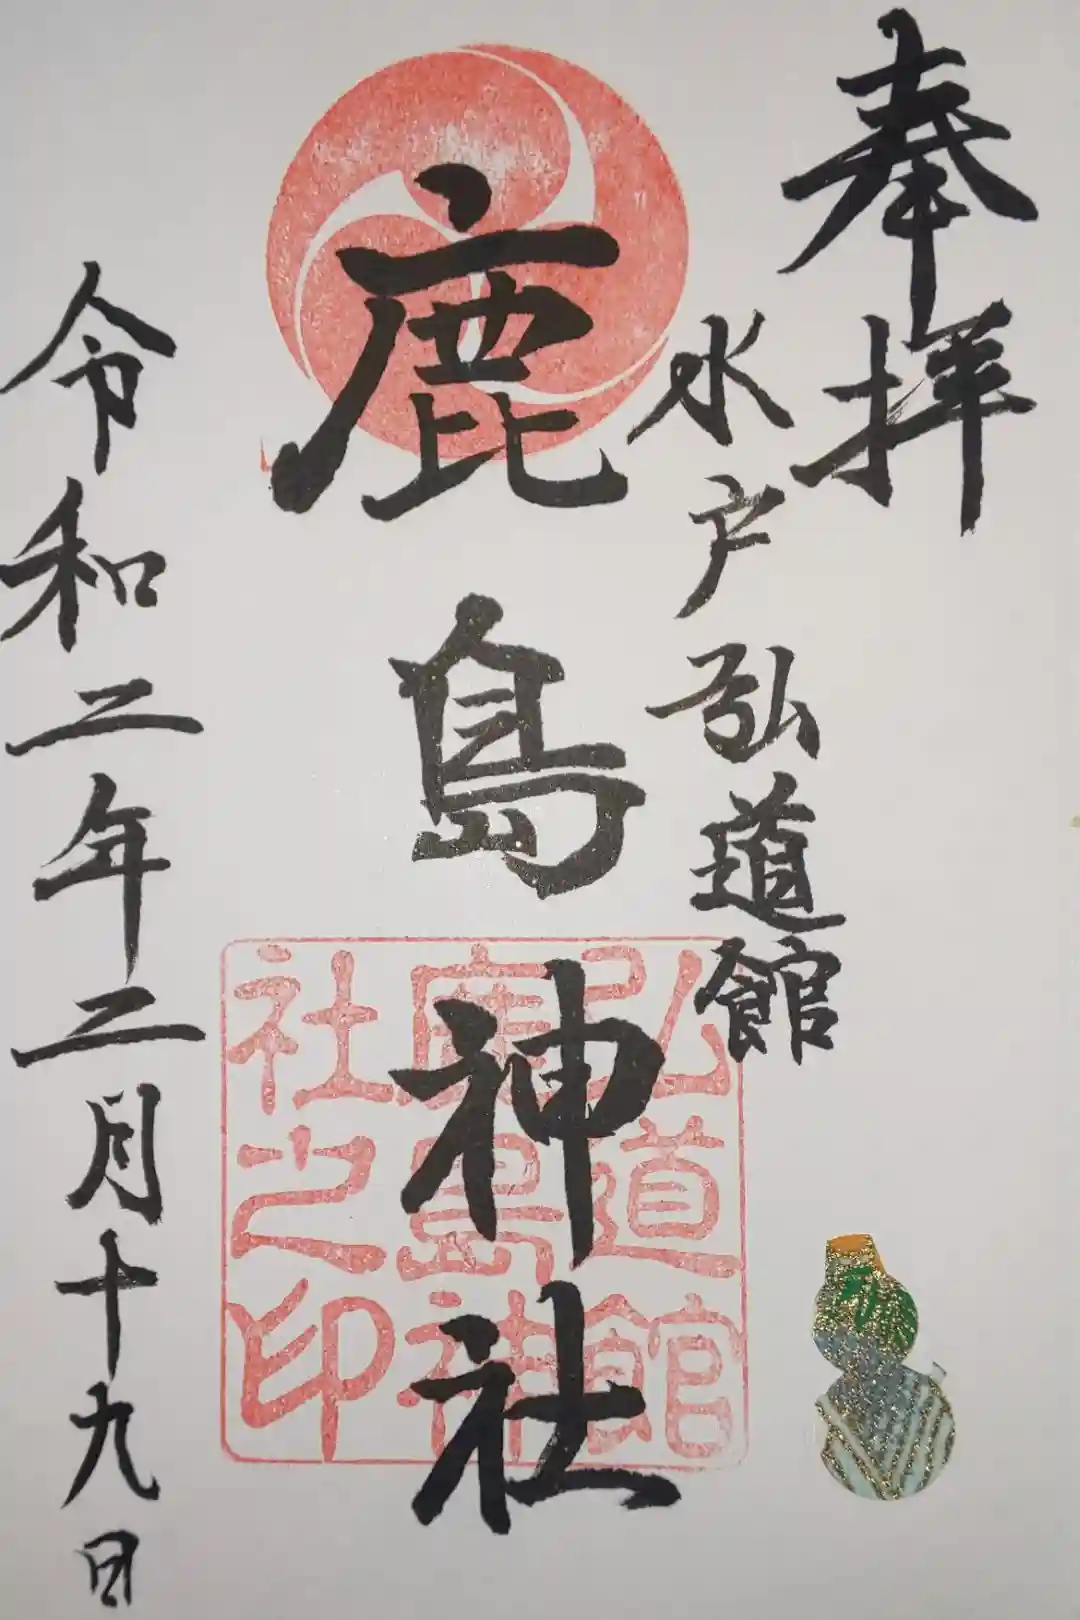 奉拝
水戸弘道館
鹿島神社
令和二年二月十九日
弘道館
鹿島神
社之印